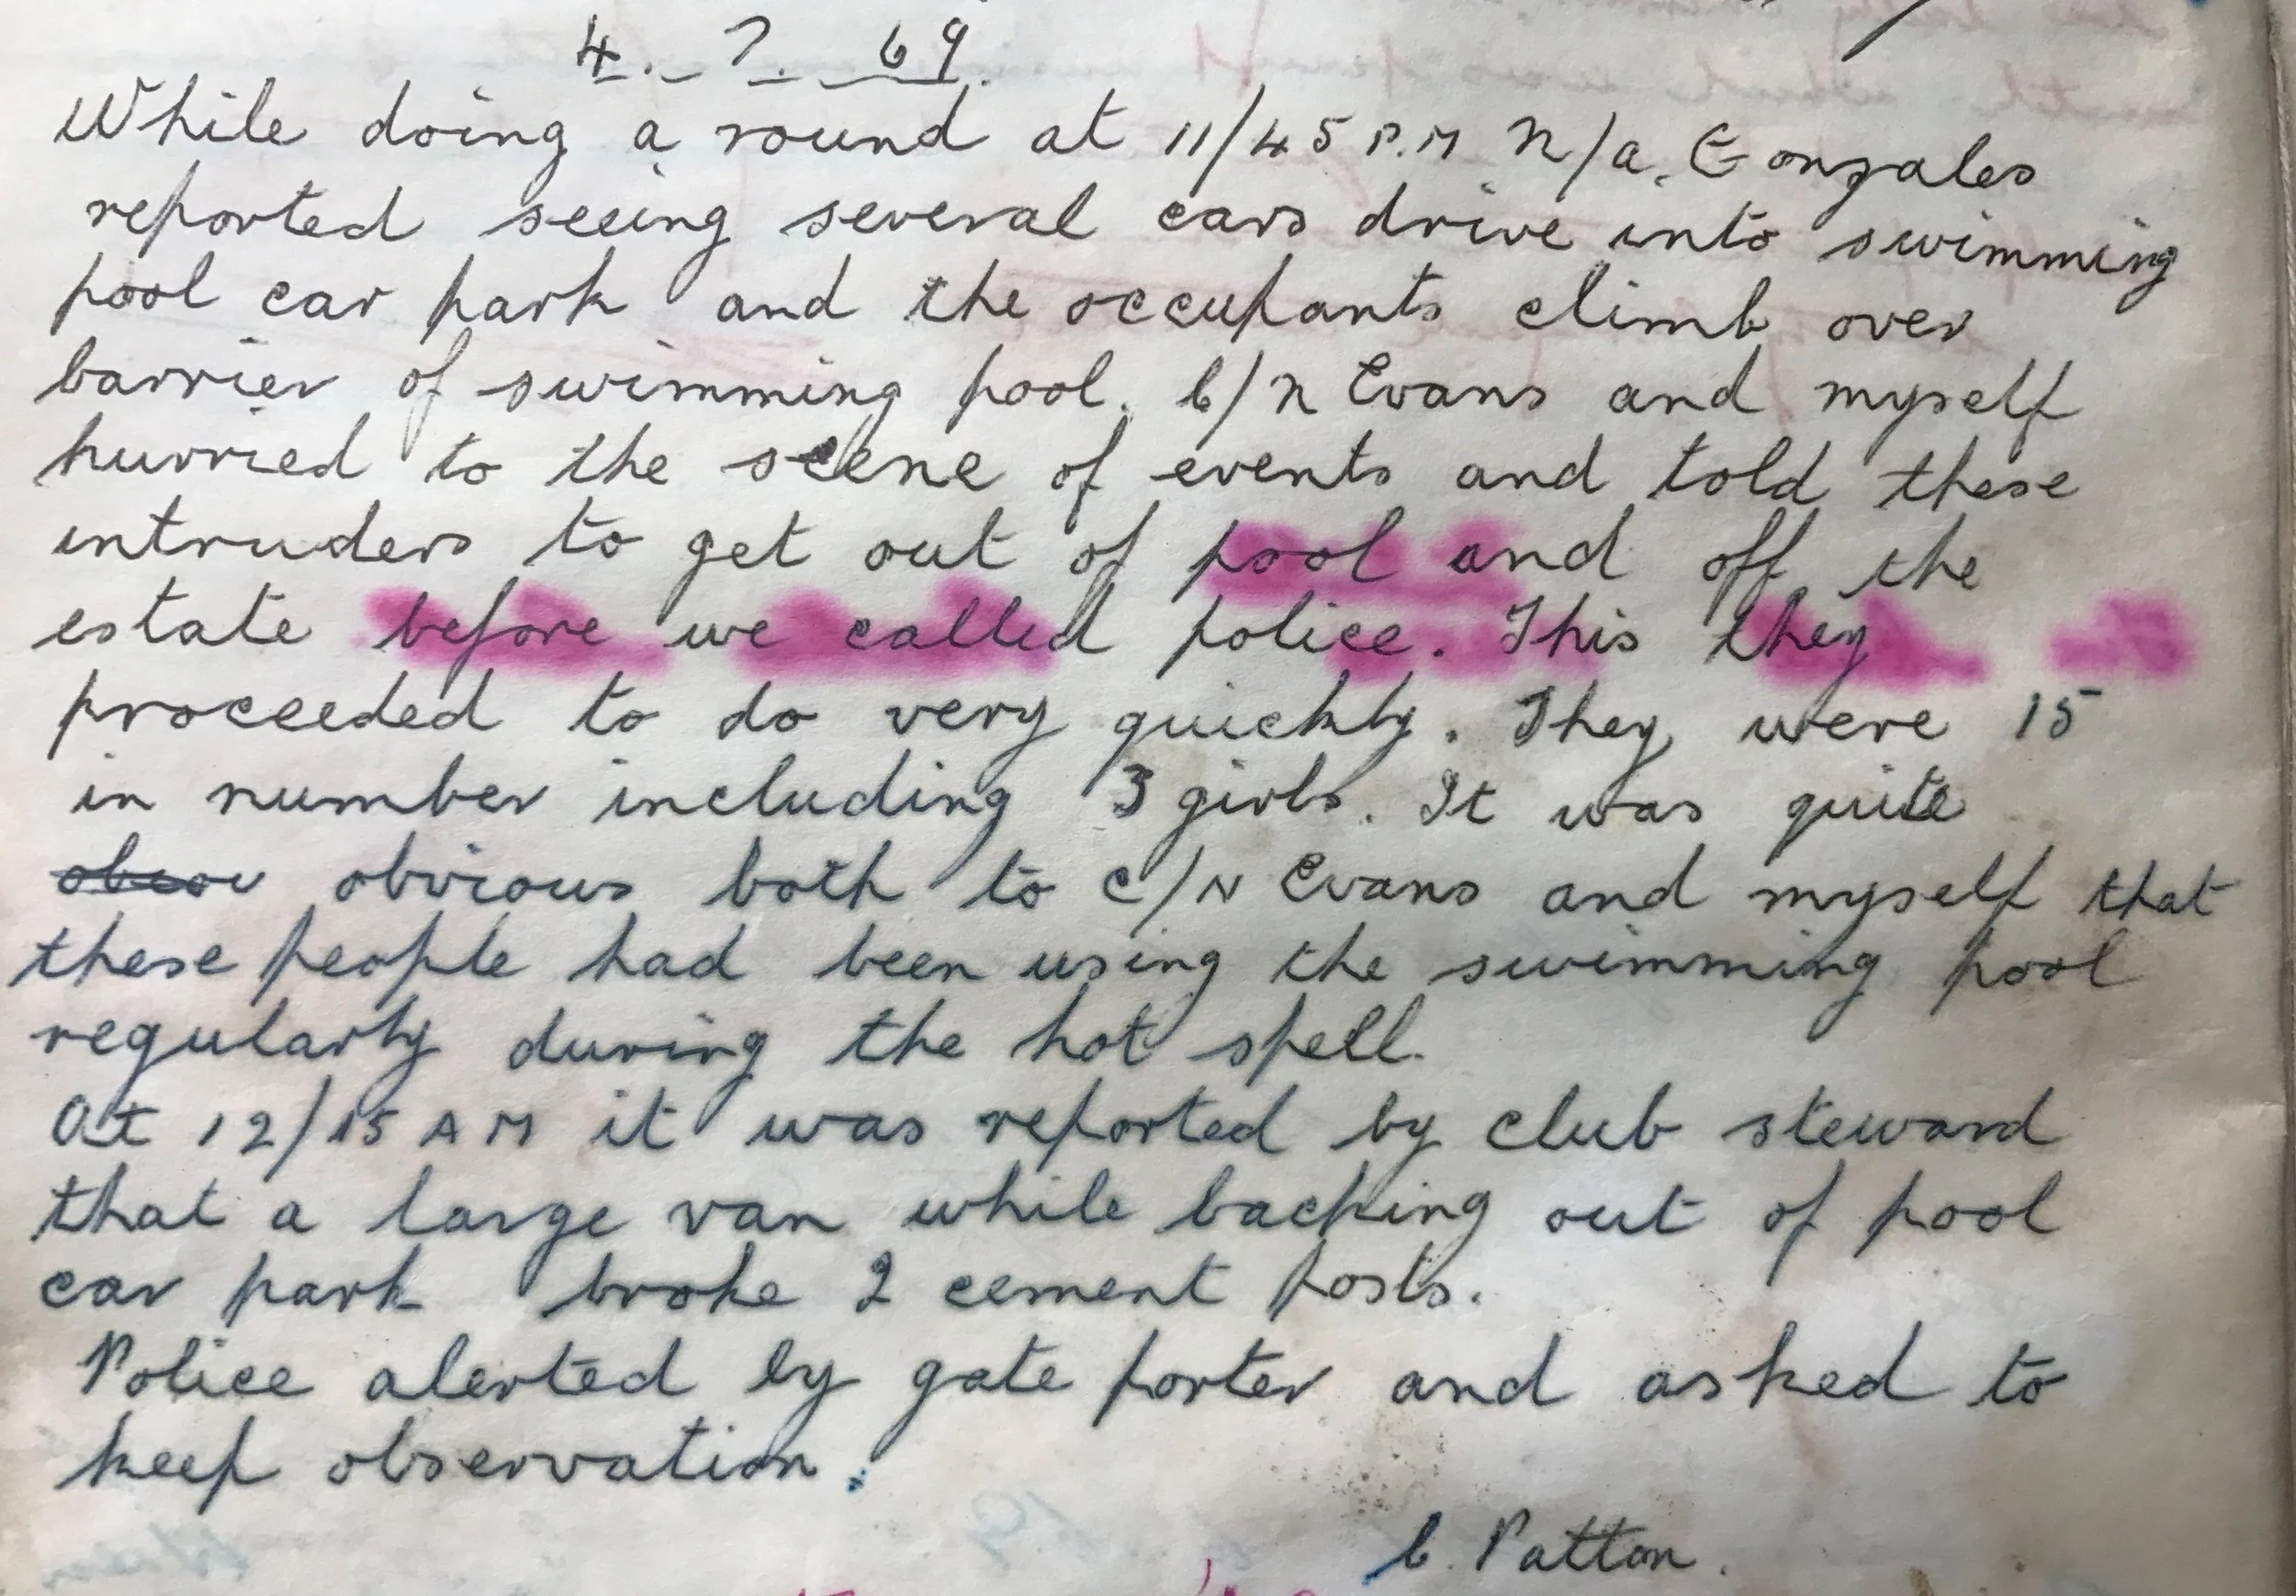 4. 7. 69.
While doing a round at 11/45 P.M N/a. Gonzales
reported seeing several cars drive into swimming
pool car park and the occupants climb over
barrier of swimming pool. C/N Evans and myself
hurried to the scene of events and told these
intruders to get out of pool and off the
estate before we called police. This they
proceeded to do very quickly. They were 15
in number including 3 girls. It was quite
obvious both to C/N Evans and myself that
these people had been using the swimming pool
regularly during the hot spell.
At 12/15 AM it was reported by club steward
that a large van while backing out of pool
car park broke 2 cement posts.
Police alerted by gate porter and asked to
keep observation.
C. Patton.